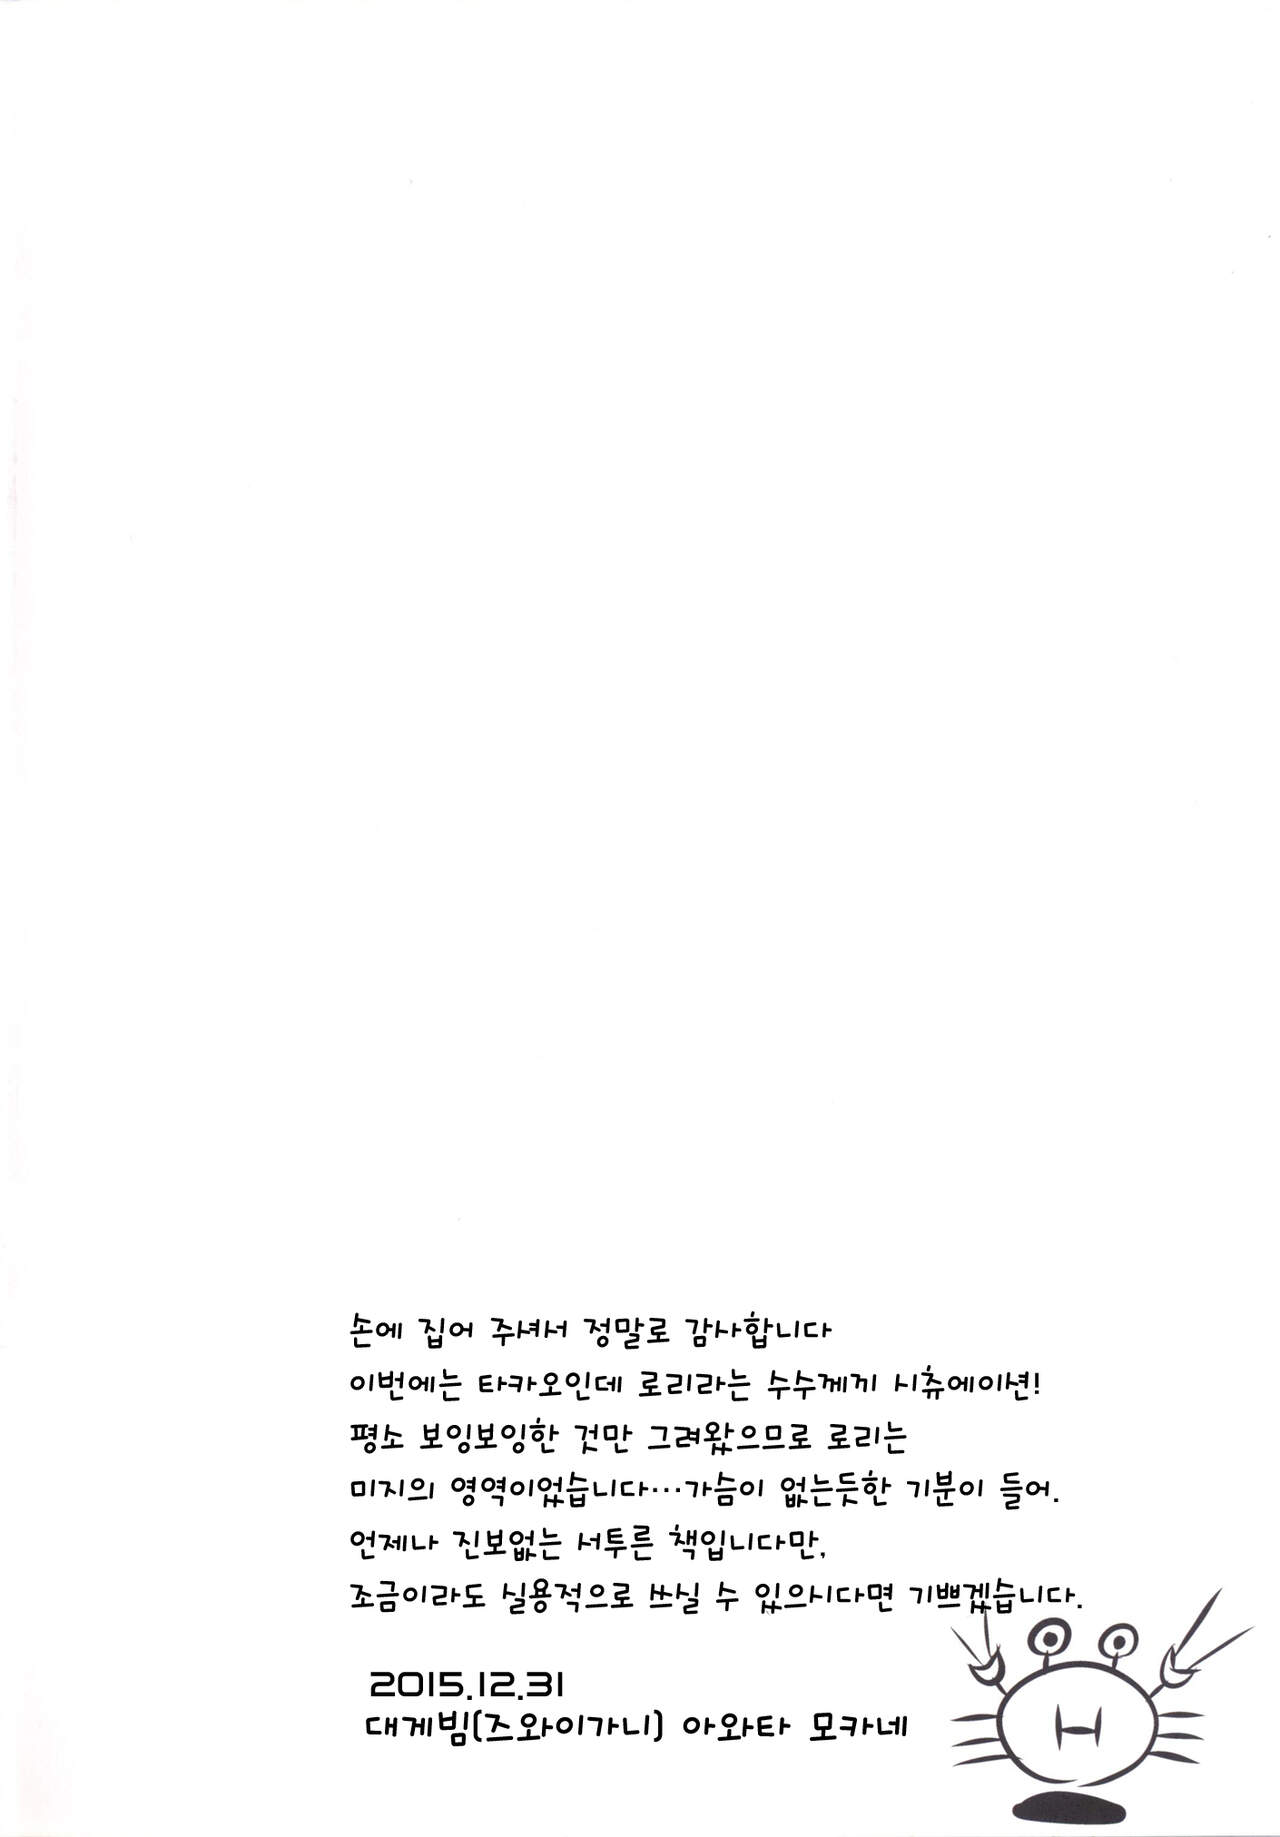 손에 집어 주셔서 정말로 감사합니다
이번에는 타카오인데 로리라는 수수께끼 시츄에이션!
평소 보잉보잉한 것만 그려왔으므로 로리는
미지의 영역이었습니다…가슴이 없는듯한 기분이 들어.
언제나 진보없는 서투른 책입니다만,
조금이라도 실용적으로 쓰실 수 있으시다면 기쁘겠습니다.
2015.12.31
대게빔(즈와이가니) 아와타 모카네
H